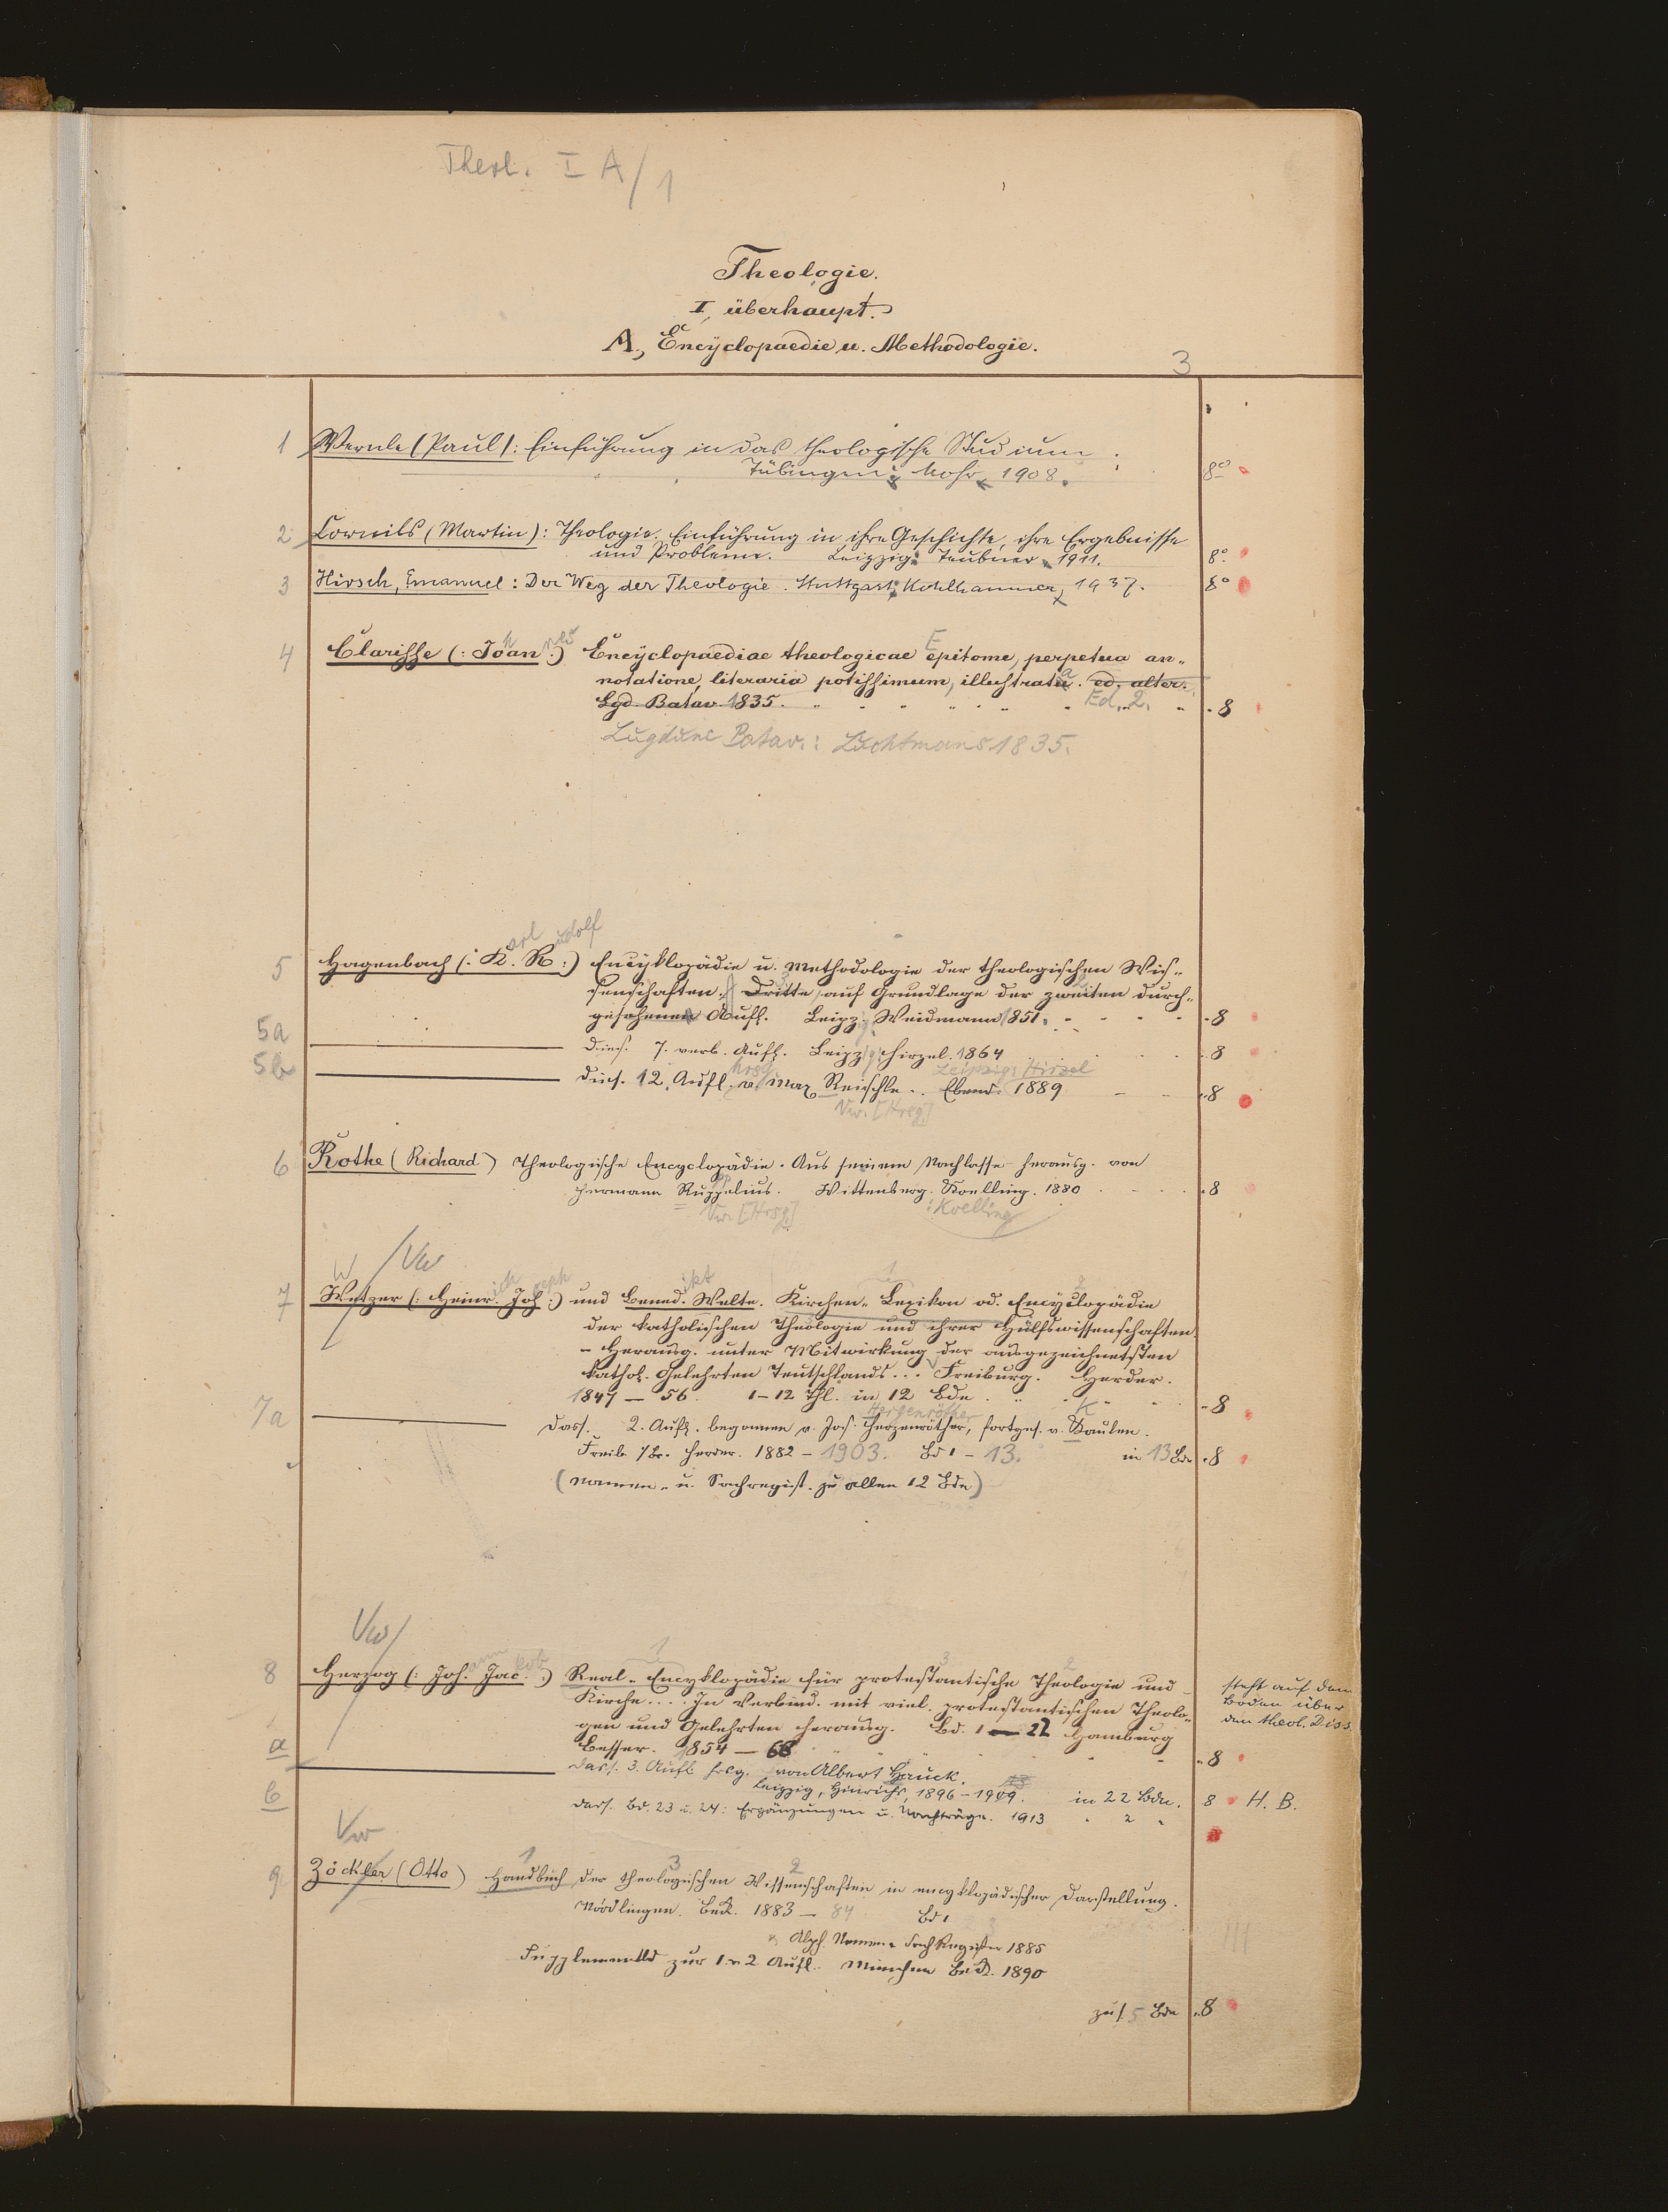 Theol. I A/1
Theologie.
I, überhaupt.
A., Encyclopaedie u. Methodologie.
3
1 Wernle (Paul): Einführung in das theologische Studium.
Tübingen: Mohr, 1908. 8°
2 Cornils (Martin): Theologie. Einführung in ihre Geschichte, ihre Ergebnisse
und Probleme. Leipzig: Teubner, 1911. 8°
3 Hirsch, Emanuel: Der Weg der Theologie. Stuttgart: Kohlhammer, 1937. 8°
4 Clarisse (: Joan :) Encyclopaediae theologicae epitome, perpetua an-
notatione, literaria potissimum, illustrata. ed. alter.
Lgd. Batav. 1835. Ed. 2. 8
Lugduni Batav.: Luchtmans 1835.
arl udolf
5 Hagenbach (: K. R. :) Encyklopädie u. Methodologie der theologischen Wis-
senschaften. Dritte, auf Grundlage der zweiten durch-
gesehenen Aufl. Leipz. Weidmann 1851. 8
5a Dies. 7. verb. Aufl. Leipz. Hirzel. 1864 8
hrsg Leipzig: Hirzel
5b dies. 12. Aufl. v. Max Reischle. Ebend. 1889 8
Vw. [Hrsg]
6 Rothe (Richard) Theologische Encyclopädie. Aus seinem Nachlasse herausg. von
Hermann Ruppelius. Wittenberg. Koelling. 1880 8
Vw. [Hrsg] : Koelling
W /Vw
ich seph ikt 1 2
7 Wetzer (: Heinr. Jos. :) und Bened. Welte. Kirchen-Lexikon od. Encyclopädie
der katholischen Theologie und ihrer Hülfswissenschaften
- Herausg. unter Mitwirkung der ausgezeichnetsten
kathol. Gelehrten Teutschlands... Freiburg. Herder.
1847 — 56. 1-12 Thl. in 12 Bde 8
Hergenröther K
7a Dass. 2. Aufl. begonnen v. Jos. Hergenröther, fortges. v. Kaulen.
Freib. i/Br. Herder. 1882 - 1903. Bd 1 - 13. in 13 Bde 8
(Namen- u. Sachregist. zu allen 12 Bde)
Vw/
ann kob 1 3 2
8 Herzog (: Joh. Jac. :) Real-Encyklopädie für protestantische Theologie und
Kirche.... In Verbind. mit viel. protestantischen Theolo-
gen und Gelehrten herausg. Bd. 1 — 22 Hamburg
Besser. 1854 — 68 8
steht auf dem
Boden über
den theol. Diss.
a dass. 3. Aufl. hrsg. von Albert Hauck.
Leipzig, Hinrichs, 1896 - 1909. in 22 Bdn. 8 H. B.
b dass. Bd. 23 u. 24: Ergänzungen u. Nachträge. 1913 " 2 "
Vw
1 3 2
9 Zöckler (Otto) Handbuch der theologischen Wissenschaften in encyklopädischer Darstellung.
Nördlingen. Beck. 1883 — 84 Bd 1
Alph. Namen- u. Sach Register 1885
Supplementbd zur 1. u. 2 Aufl. München Beck. 1890
zus. 5 Bde 8